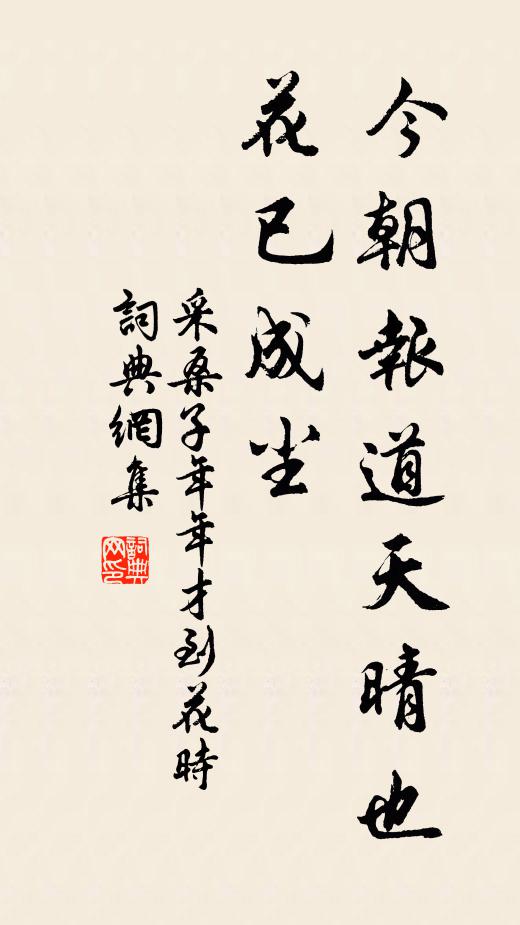 今朝報道天晴也
花已成尘
采桑子年年才到花時
詞典網集
詞典网印